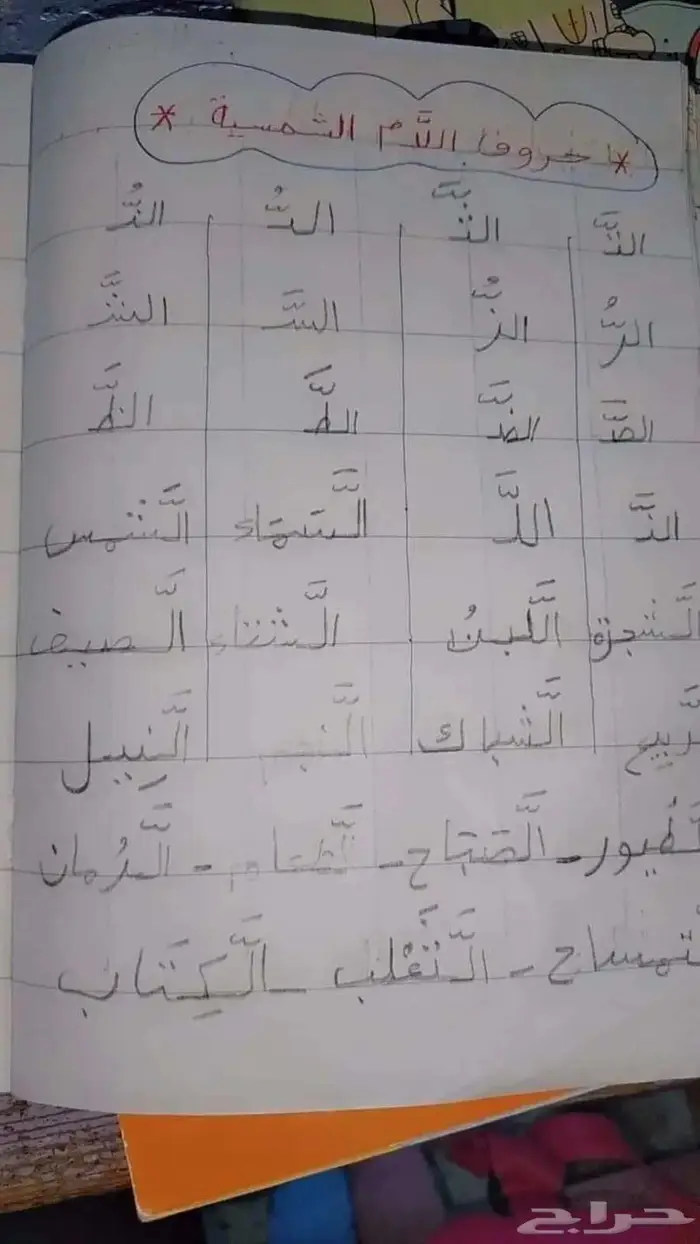 * حروف اللَّام الشمسية *
التَّ الثَّ الدُّ الذُّ
الرُّ الزُّ السَّ الشَّ
الصَّ الضَّ الطَّ الظَّ
النَّ اللَّ الَّسماء الَّشمس
الَّشجرة الَّلبنُ الَّشتاء الَّصيف
الَّشباك الَّنجم الَّنِيل
الَّصَبَاح - الَّطعام - الَّرُمان
الَّثَعْلب - الَّكِتَاب
حراج